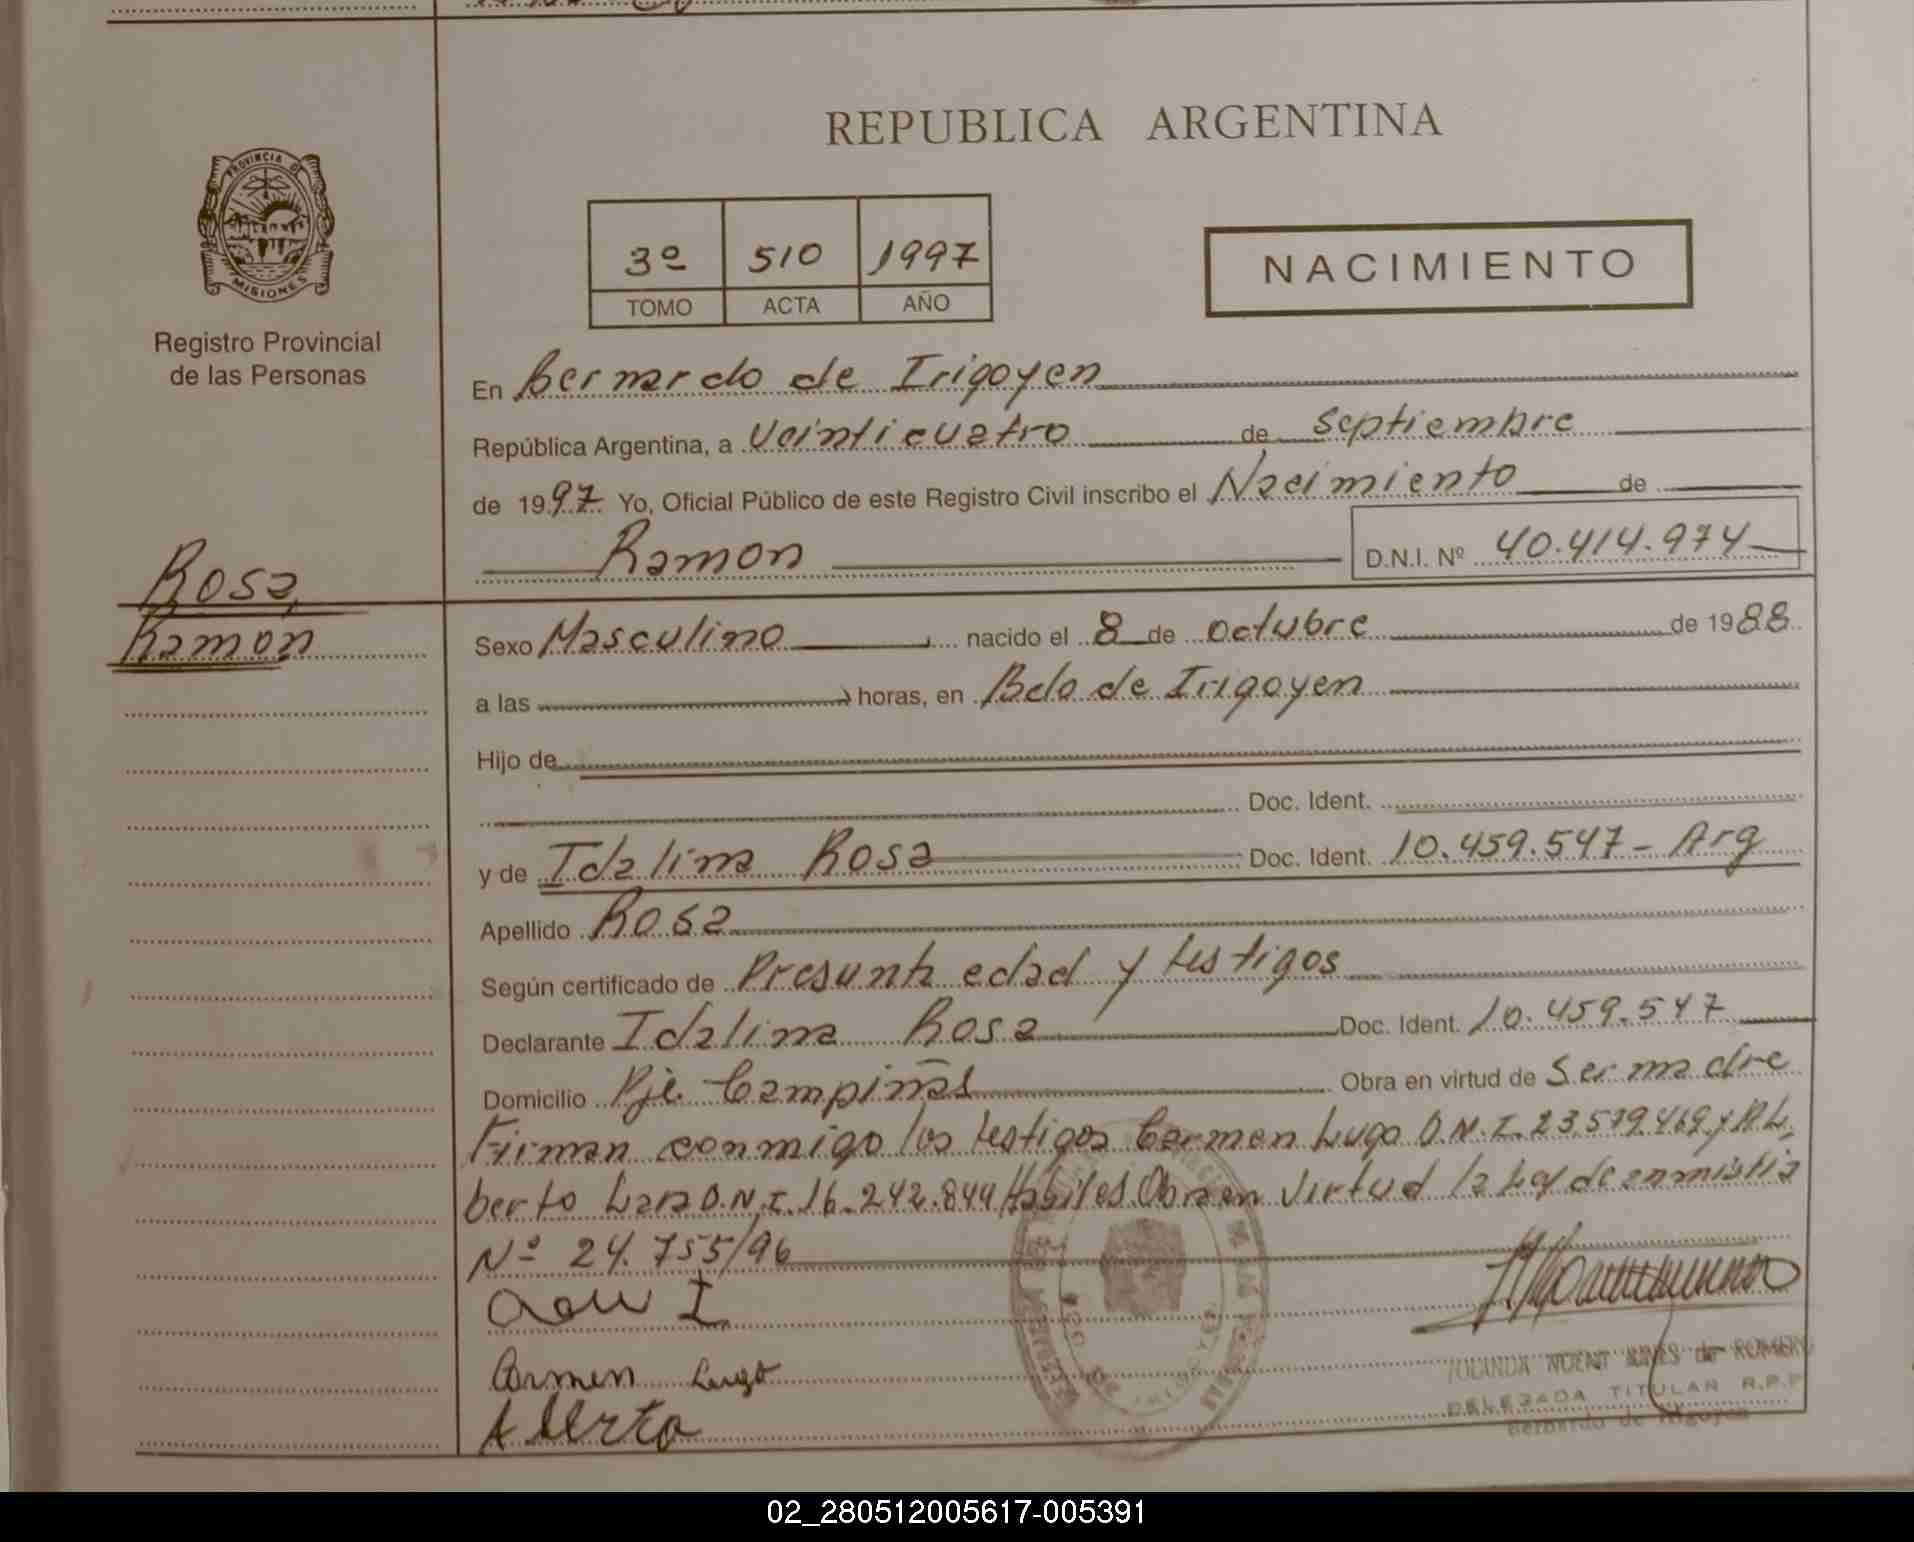 REPUBLICA ARGENTINA
PROVINCIA DE
MISIONES
Registro Provincial
de las Personas
3º 510 1997
TOMO ACTA AÑO
NACIMIENTO
En Bernardo de Irigoyen
República Argentina, a Veinticuatro de Septiembre
de 1997. Yo, Oficial Público de este Registro Civil inscribo el Nacimiento de
Ramon D.N.I. Nº 40.414.974
Rosa,
Ramon
Sexo Masculino nacido el 8 de octubre de 1988
a las horas, en Bdo de Irigoyen
Hijo de
Doc. Ident.
y de Idalina Rosa Doc. Ident. 10.459.547 - Arg
Apellido Rosa
Según certificado de Presunta edad y testigos
Declarante Idalina Rosa Doc. Ident. 10.459.547
Domicilio Pje Campiñas Obra en virtud de Ser madre
Firman conmigo los testigos Carmen Lugo D.N.I. 23.579.469 y Al
berto Lara D.N.I. 16.242.844 Habiles. Obra en Virtud la Ley de anmistia
Nº 24.755/96
Carmen Lugo
Alberto
de ROMERO
DELEGADA TITULAR R.P.P
Bernardo de Irigoyen
02_280512005617-005391